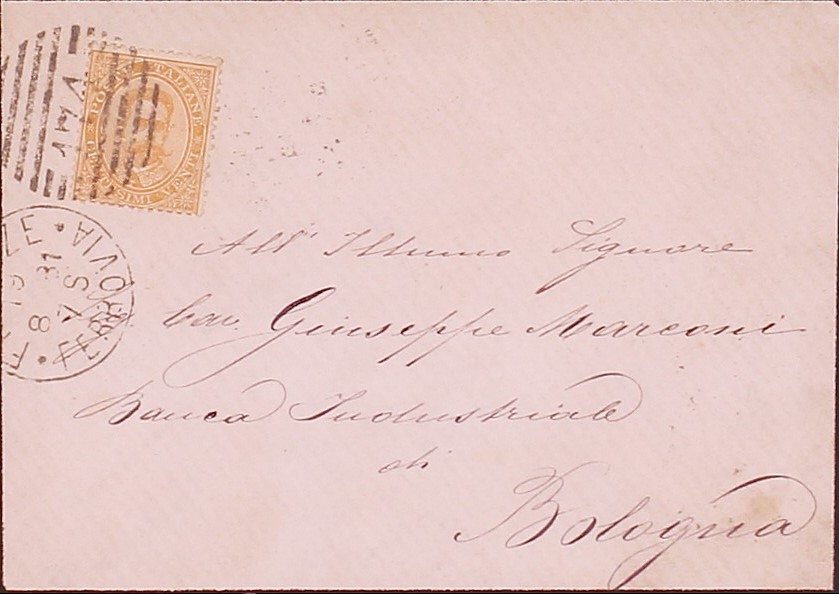 POSTE ITALIANE
CENTESIMI VENTI
FERROVIA
All' Illmo Signore
Cav. Giuseppe Marconi
Banca Industriale
di
Bologna